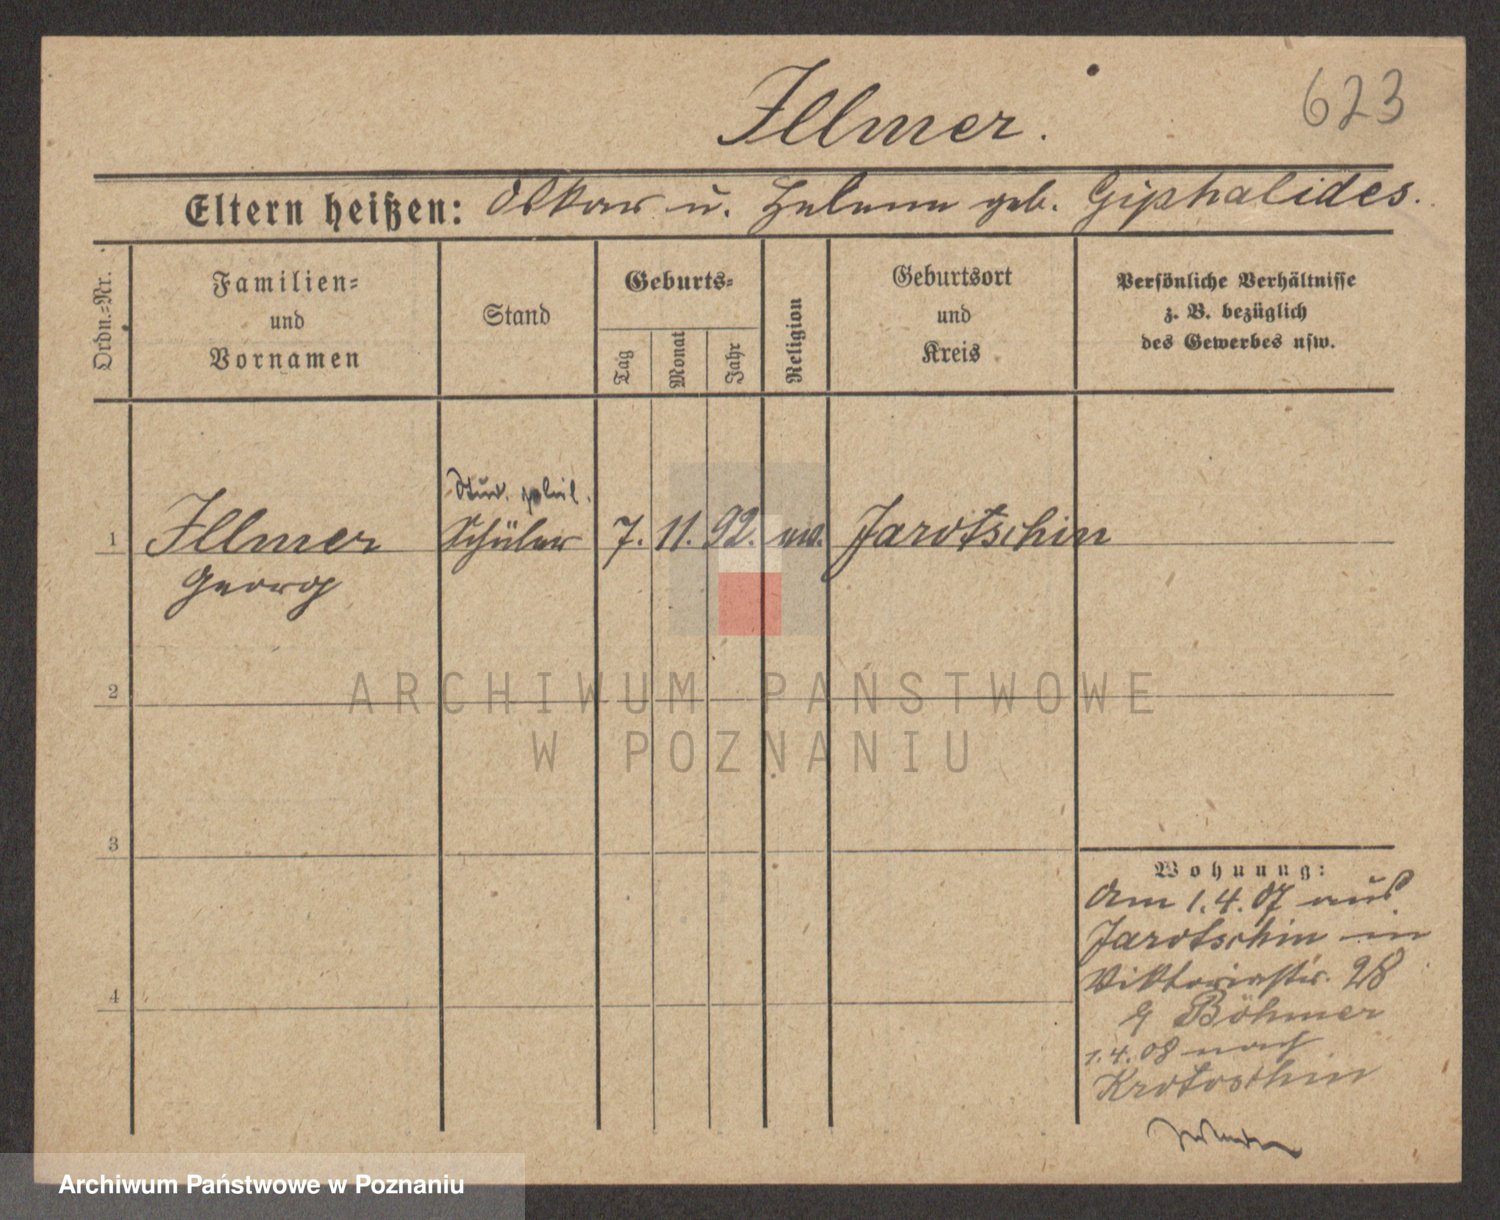 Illmer.
623
Eltern heißen: Oskar u. Helene geb. Giphalides.
Ordn.=Nr.
Familien=
und
Vornamen
Stand
Geburts=
Tag
Monat
Jahr
Religion
Geburtsort
und
Kreis
Persönliche Verhältnisse
z. B. bezüglich
des Gewerbes usw.
Stud. phil.
1 Illmer Schüler 7. 11. 92. ev. Jarotschin
Georg
2
3
4
Wohnung:
Am 1.4.07 aus
Jarotschin in
Viktoriastr. 28
Böhmer
1.4.08 nach
Krotoschin
ARCHIWUM PAŃSTWOWE
W POZNANIU
Archiwum Państwowe w Poznaniu